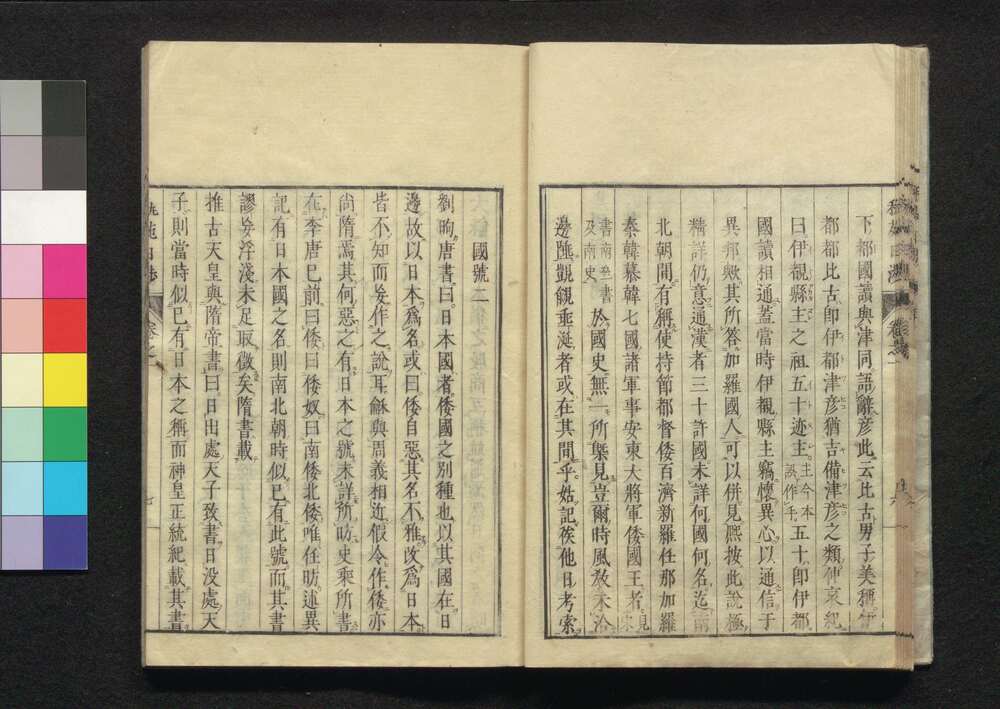 下都國讀與津同語辭彥此云比古男子美稱
都都比古卽伊都津彥猶吉備津彥之類仲哀紀
曰伊覩縣主之祖五十迹主今本誤作手五十卽伊都
國讀相通蓋當時伊覩縣主竊懷異心以通信于
異邦歟其所答加羅國人可以併見熈按此說極
精詳仍意通漢者三十許國未詳何國何名迄
北朝間有稱使持節都督倭百濟新羅任那加羅
秦韓慕韓七國諸軍事安東大將軍倭國王者見
書南齊書及南史於國史無一所槩見豈爾時風敎未洽
邊陲觀覦垂涎者或在其間乎姑記俟他日考索
國號二
劉昫唐書曰日本國者倭國之別種也以其國在日
邊故以日本爲名或曰倭自惡其名不雅改爲日本
皆不知而妄作之說耳龢與周義相近假令作倭亦
尙隋焉其何惡之有日本之號未詳所昉史乘所書
在李唐已前曰倭曰倭奴曰南倭北倭唯任昉述異
記有日本國之名則南北朝時似已有此號而其書
謬妄浮淺未足取徵矣隋書載
推古天皇與隋帝書曰日出處天子致書日没處天
子則當時似已有日本之稱而神皇正統紀載其書